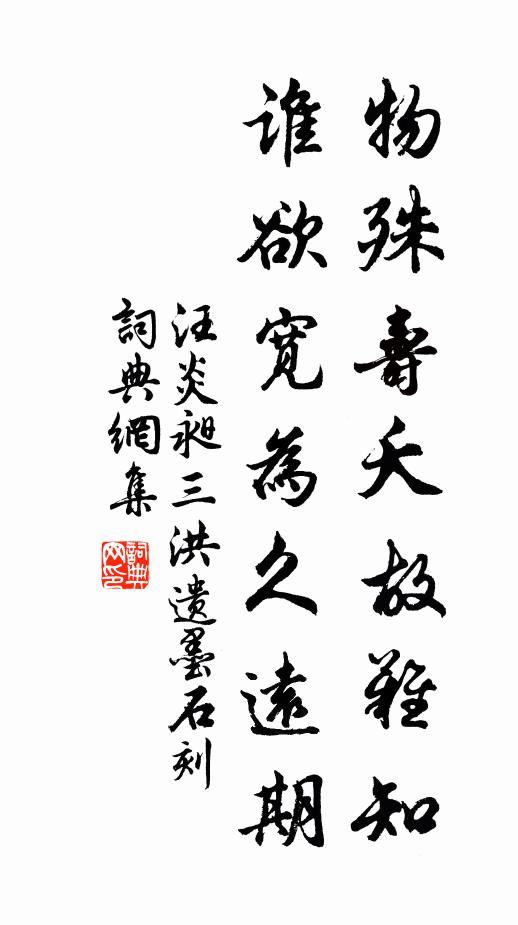 物殊壽夭故難知
誰欲寬為久遠期
汪炎昶三洪遺墨石刻
詞典網集
詞典網印